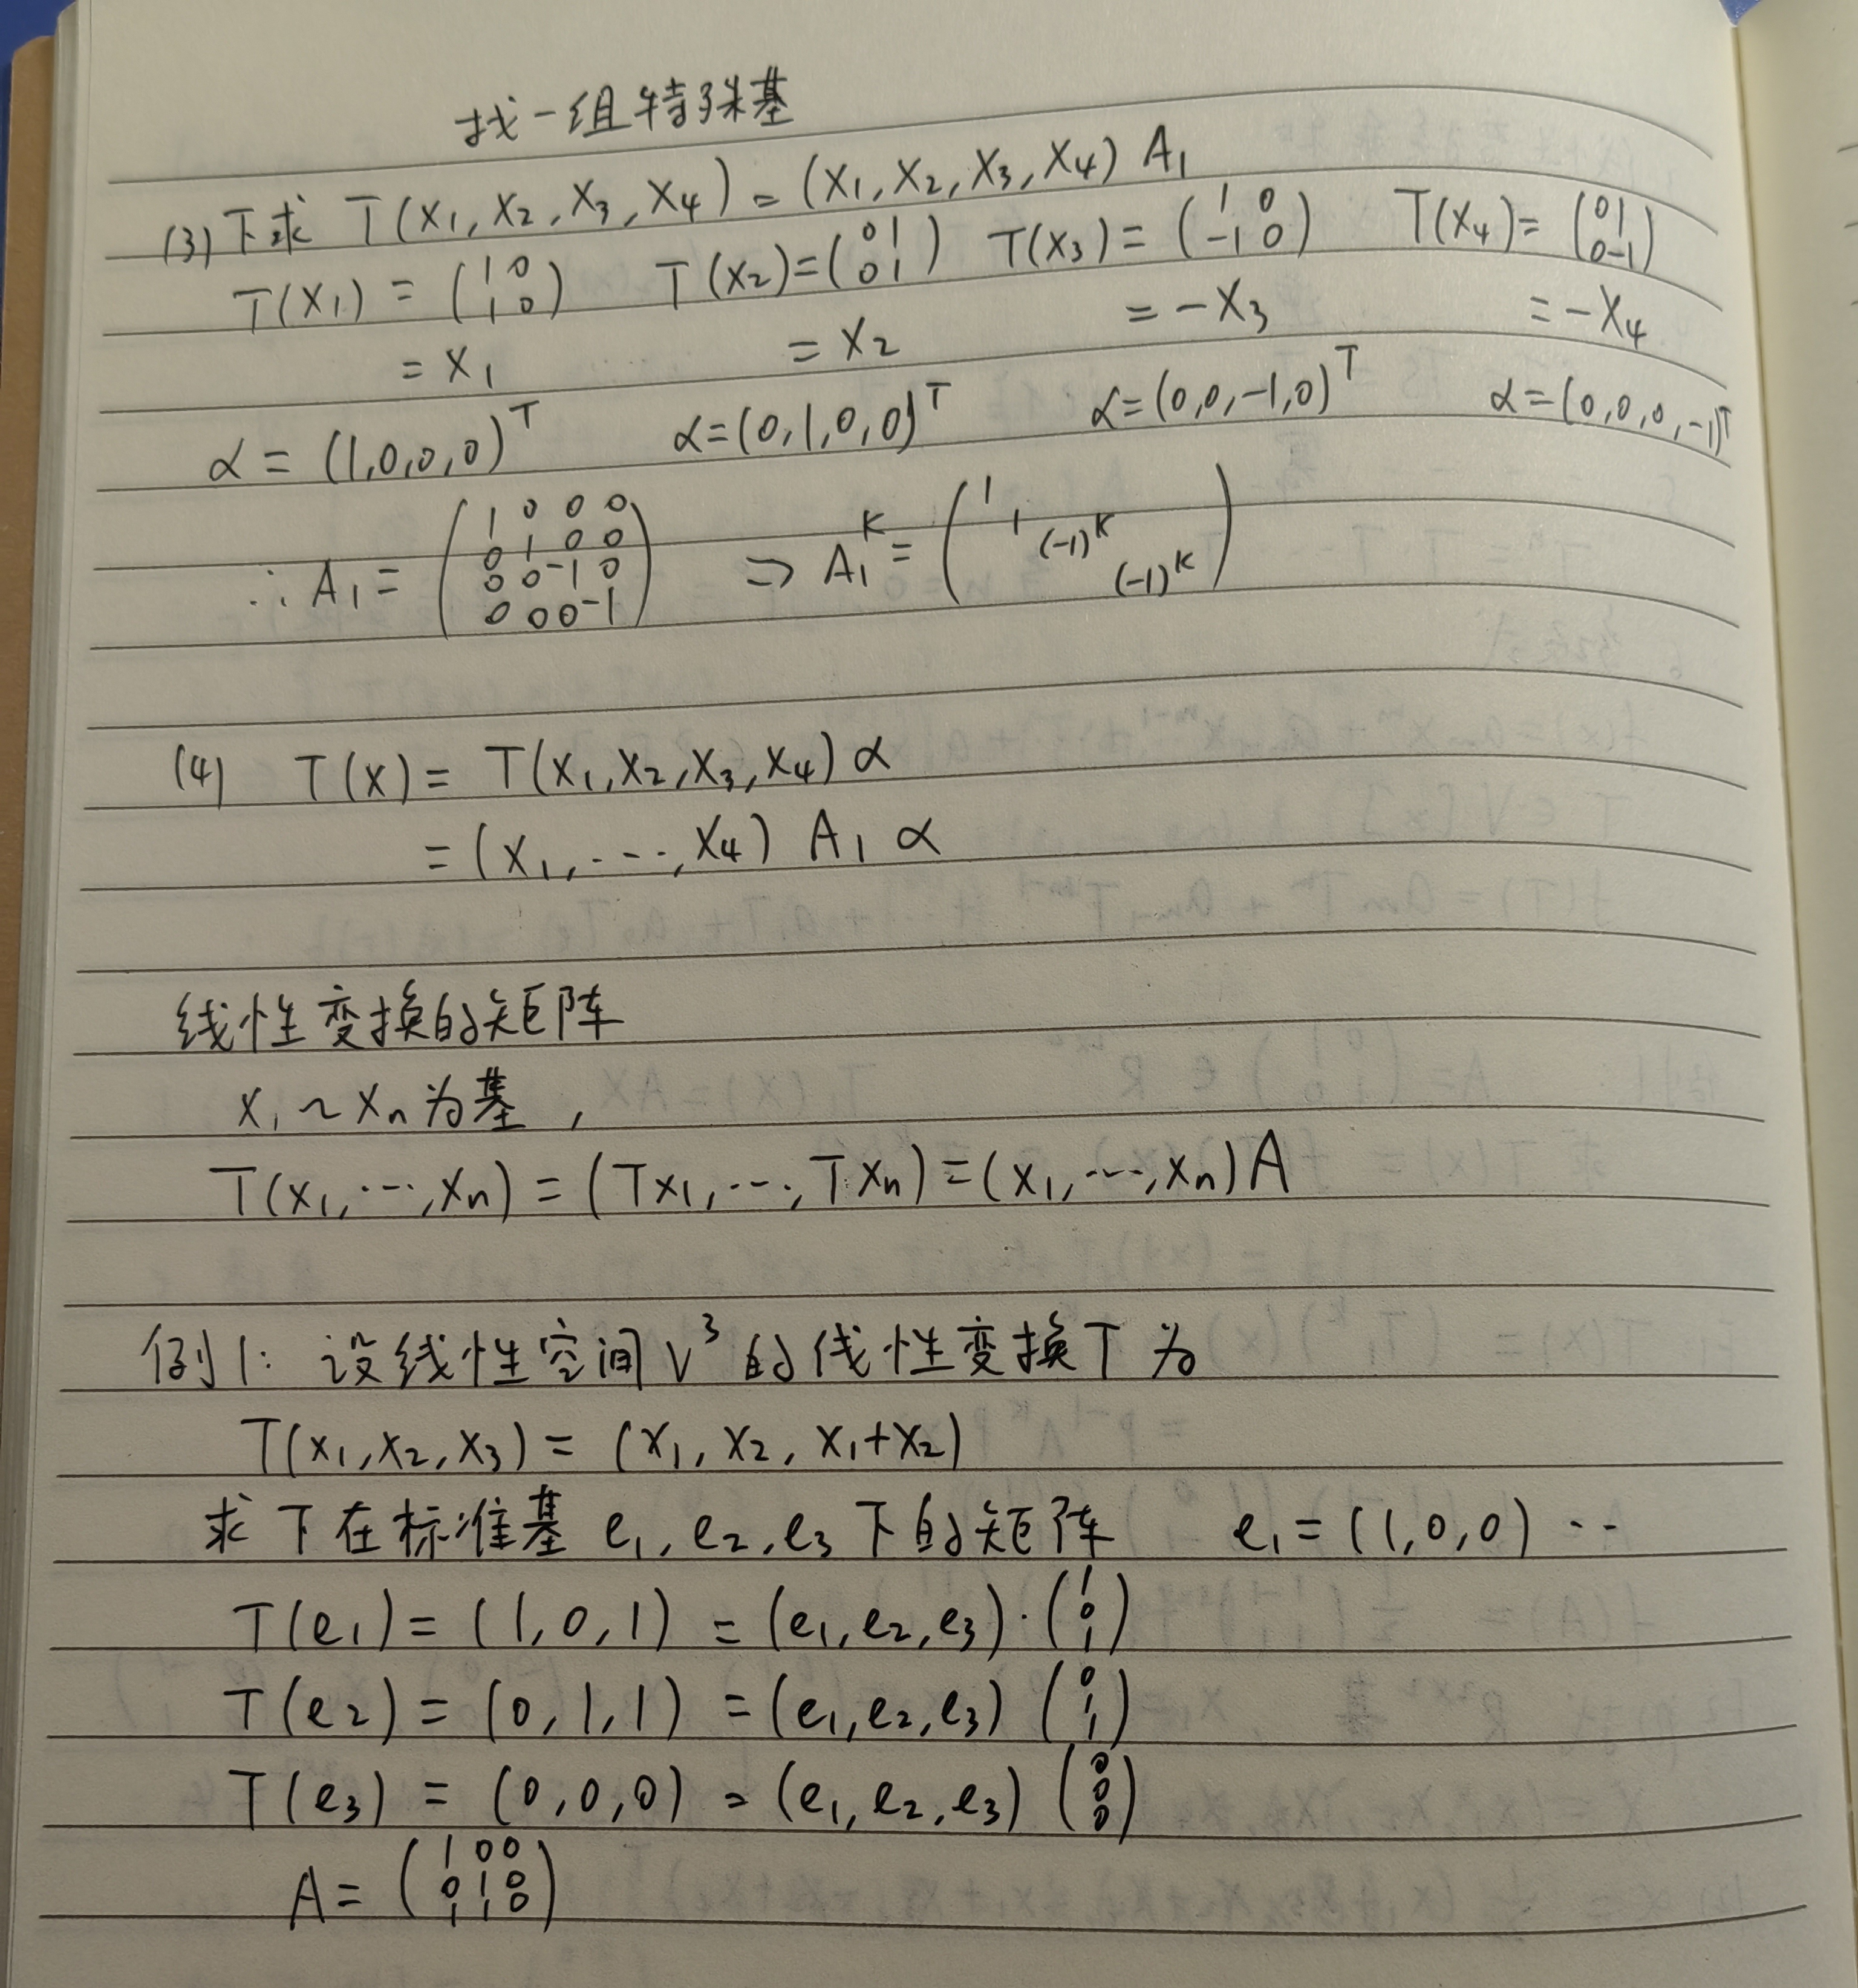 找一组特殊基
(3) 下求 T(x₁, x₂, x₃, x₄) = (x₁, x₂, x₃, x₄) A₁
T(x₁) = (1 0; 1 0) T(x₂) = (0 1; 0 1) T(x₃) = (1 0; -1 0) T(x₄) = (0 1; 0 -1)
= x₁ = x₂ = -x₃ = -x₄
α = (1,0,0,0)ᵀ α = (0,1,0,0)ᵀ α = (0,0,-1,0)ᵀ α = (0,0,0,-1)ᵀ
∴ A₁ = (1 0 0 0; 0 1 0 0; 0 0 -1 0; 0 0 0 -1) ⇒ A₁ᴷ = (1 1 (-1)ᴷ (-1)ᴷ)
(4) T(x) = T(x₁, x₂, x₃, x₄) α
= (x₁, ..., x₄) A₁ α
线性变换的矩阵
x₁ ~ xₙ 为基,
T(x₁, ..., xₙ) = (Tx₁, ..., Txₙ) = (x₁, ..., xₙ) A
例1: 设线性空间 V³ 的线性变换 T 为
T(x₁, x₂, x₃) = (x₁, x₂, x₁+x₂)
求 T 在标准基 e₁, e₂, e₃ 下的矩阵 e₁ = (1,0,0) ··
T(e₁) = (1, 0, 1) = (e₁, e₂, e₃) · (1; 0; 1)
T(e₂) = (0, 1, 1) = (e₁, e₂, e₃) (0; 1; 1)
T(e₃) = (0, 0, 0) = (e₁, e₂, e₃) (0; 0; 0)
A = (1 0 0; 0 1 0; 1 1 0)